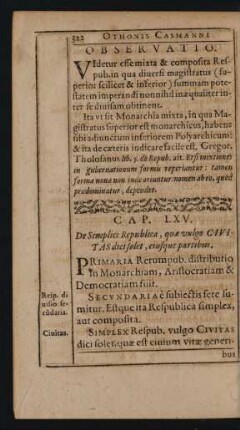 322 OTHONIS CASMANNI
OBSERVATIO.
VIdetur esse mixta & composita Res-
pub. in qua diversi magistratus (su-
perior scilicet & inferior) summam pote-
statem imperandi nonnihil inæqualiter in-
ter se divisam obtinent.
Ita ut sit Monarchia mixta, in qua Ma-
gistratus superior est monarchicus, habens
sibi adiunctum inferiorem Polyarchicum:
& ita de cæteris indicare facile est, Gregor.
Tholosanus lib. 5. de Repub. ait. Etsi mixtiones
in gubernationum formis reperiantur: tamen
forma nova non inde oriuntur nomen ab eo, quod
prædominatur, dependet.
CAP. LXV.
De Simplici Republica, quæ vulgo CIVI-
TAS dici solet, eiusque partibus.
PRIMARIA Rerumpub. distributio
in Monarchiam, Aristocratiam &
Democratiam fuit.
Reip. di
visio se-
cũdaria.
SECUNDARIA è subiectis fere su-
mitur. Estque ita Respublica simplex,
aut composita.
Civitas.
SIMPLEX Respub. vulgo CIVITAS
dici solet, quæ est civium vitæ generi-
bus